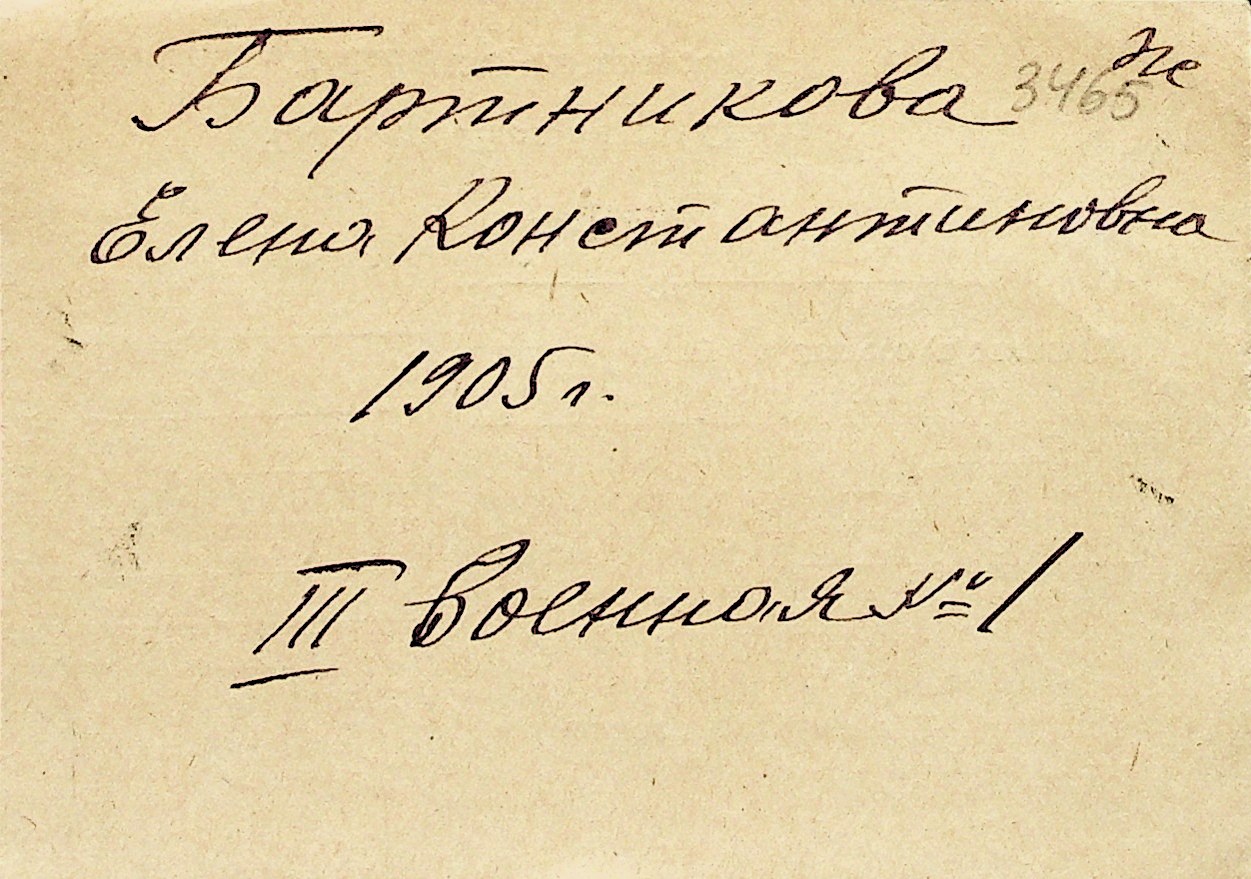 Бартникова 3465
Елена Константиновна
1905 г.
III Военная № 1